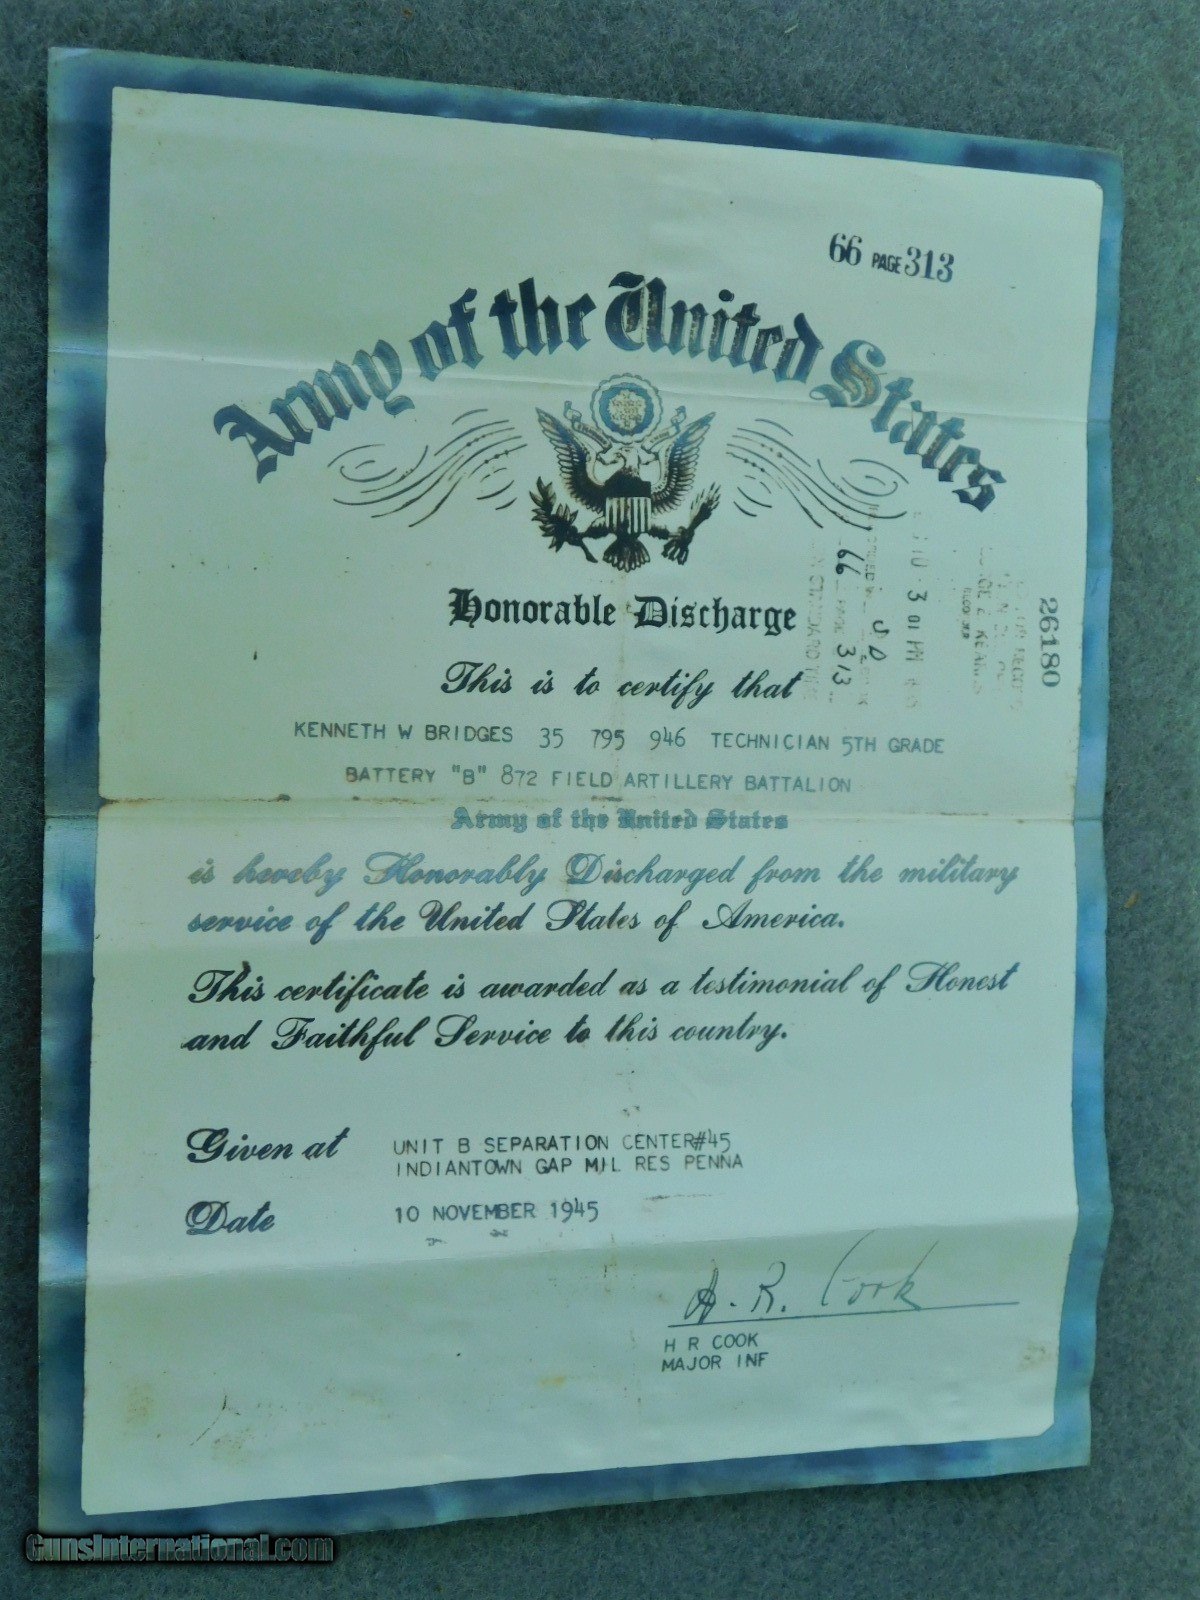 66 PAGE 313
Army of the United States
Honorable Discharge
This is to certify that
KENNETH W BRIDGES 35 795 946 TECHNICIAN 5TH GRADE
BATTERY "B" 872 FIELD ARTILLERY BATTALION
Army of the United States
is hereby Honorably Discharged from the military
service of the United States of America.
This certificate is awarded as a testimonial of Honest
and Faithful Service to this country.
Given at UNIT B SEPARATION CENTER#45
INDIANTOWN GAP MIL RES PENNA
Date 10 NOVEMBER 1945
H. R. Cook
H R COOK
MAJOR INF
26180
3 01 PM
66 PAGE 313
GunsInternational.com